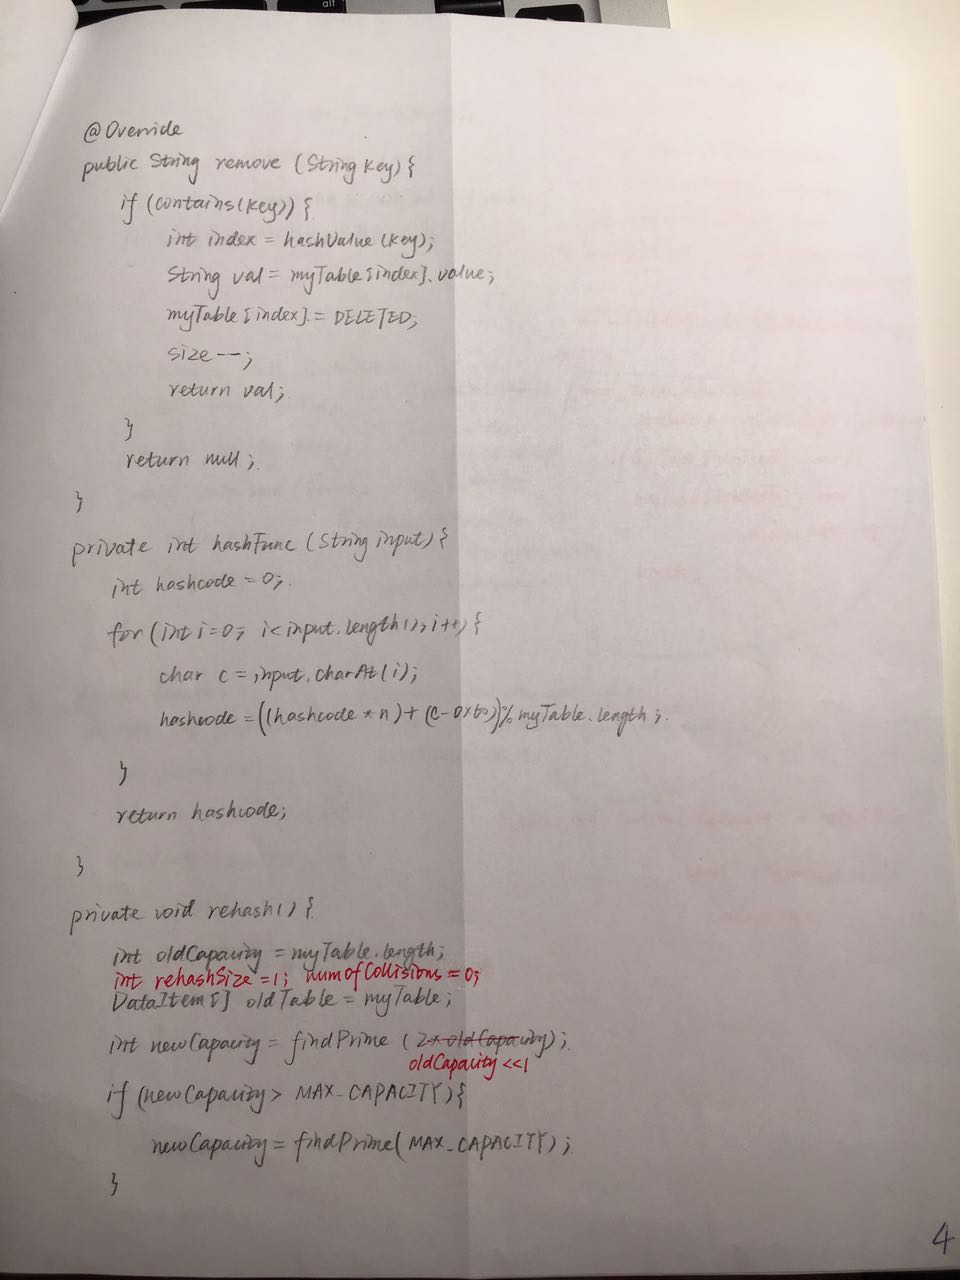 alt
@Override
public String remove (String key) {
if (contains(key)) {
int index = hashValue (key);
String val = myTable[index].value;
myTable[index] = DELETED;
size--;
return val;
}
return null;
}
private int hashFunc (String input) {
int hashcode = 0;
for (int i=0; i<input.length(); i++) {
char c = input.charAt(i);
hashcode = ((hashcode * n) + (c-0x60)) % myTable.length;
}
return hashcode;
}
private void rehash() {
int oldCapacity = myTable.length;
int rehashSize =1; numofCollisions = 0;
DataItem[] oldTable = myTable;
int newCapacity = findPrime (2* oldCapacity);
oldCapacity <<1
if (newCapacity > MAX_CAPACITY) {
newCapacity = findPrime(MAX_CAPACITY);
}
4